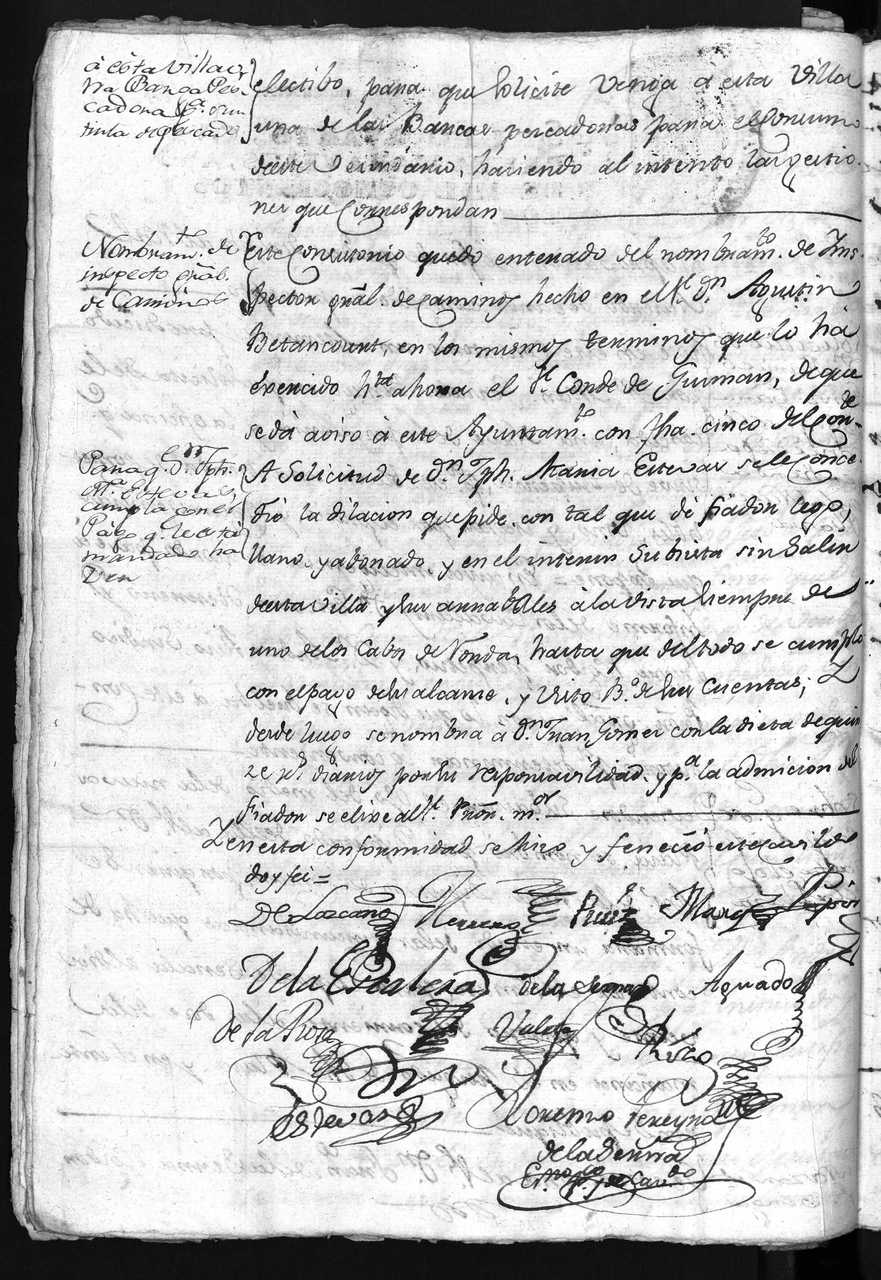 à esta villa u
na Barca Pes
cadora pª. surtir
tirla de pescado
electibo, para que solicite venga a esta Villa
una de las Barcas pescadoras para el Consumo
de este Vecindario, haciendo al intento las gestio
nes que Correspondan
Nombramto. de
inspector gral.
de Caminos
Este Consistorio quedó enterado del nombramto. de Ins
pector gral. de caminos hecho en el Sr. Dn. Agustin
Betancourt, en los mismos terminos que lo ha
exercido hta. ahora el Sr. Conde de Guzman, de que
se dá aviso à este Ayuntamto. con fha. cinco del corrte
Para q. Dn. Jph.
Mª. Estevan
cumpla con el
Pago q. le està
mandado ha
cer
A Solicitud de Dn. Jph. Maria Estevan se le Conce
dió la dilacion que pide, con tal que dé fiador lego,
llano, y abonado, y en el interin Subsista sin Salir
de esta villa y sus arrabales à la vista siempre de
uno de los Cabos de Ronda, hasta que del todo se cumpla
con el pago de su alcance, y Visto Bº. de sus Cuentas; Y
desde luego se nombra à Dn. Juan Gomez con la dieta de quin
ze rs. diarios por su responsavilidad, y pª. la admicion del
fiador se elixe al Sr. Procr. mor.
Y en esta conformidad se hizo y feneció este cavildo
doy fé =
De Lozcano Herrero Ruiz Marqz
De la Escalera de la Serna Aguado
De la Rosa Valdes Risco
Estevan Lorenzo Pereyra
de la Serna
Esno. de Cavdo